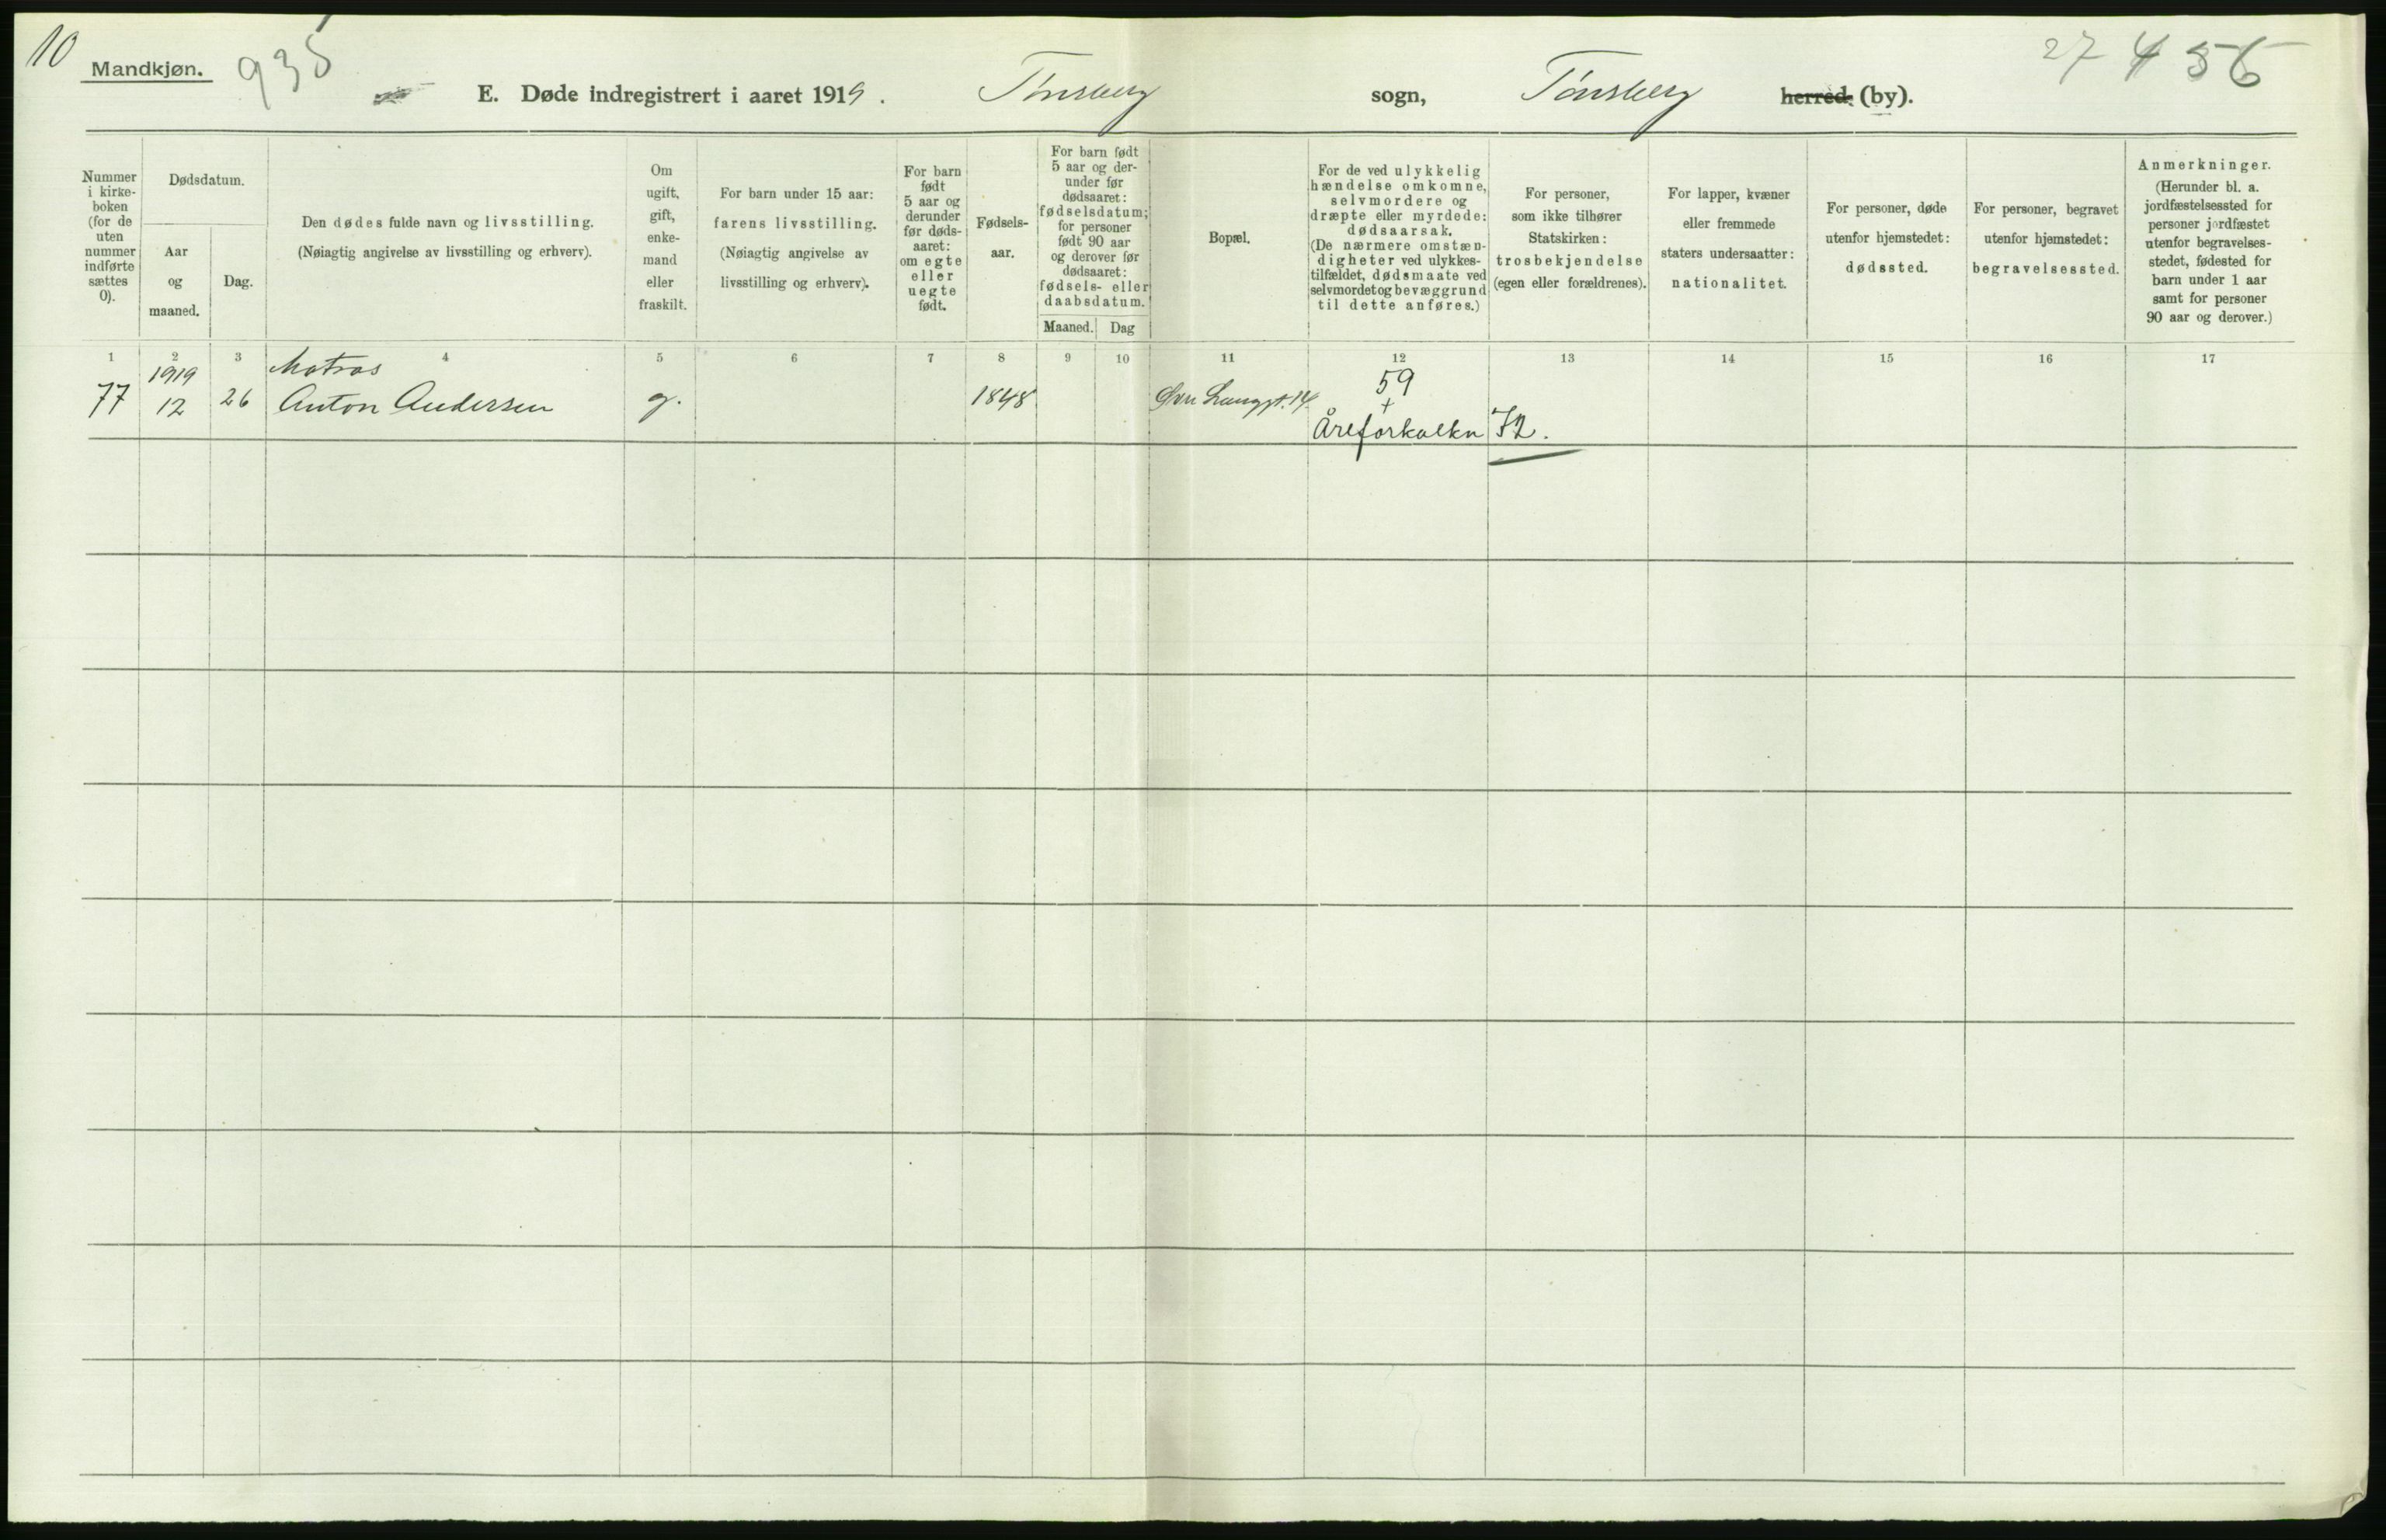 10
Mandkjøn.
935
27 456
E. Døde indregistrert i aaret 1919. Tønsberg sogn, Tønsberg herred (by).
Nummer
i kirke-
boken
(for de
uten
nummer
indførte
sættes
0).
Dødsdatum.
Aar
og
maaned.
Dag.
Den dødes fulde navn og livsstilling.
(Nøiagtig angivelse av livsstilling og erhverv).
Om
ugift,
gift,
enke-
mand
eller
fraskilt.
For barn under 15 aar:
farens livsstilling.
(Nøiagtig angivelse av
livsstilling og erhverv).
For barn
født
5 aar og
derunder
før døds-
aaret:
om egte
eller
uegte
født.
Fødsels-
aar.
For barn født
5 aar og der-
under før
dødsaaret:
fødselsdatum;
for personer
født 90 aar
og derover før
dødsaaret:
fødsels- eller
daabsdatum.
Maaned. Dag
Bopæl.
For de ved ulykkelig
hændelse omkomne,
selvmordere og
dræpte eller myrdede:
dødsaarsak.
(De nærmere omstæn-
digheter ved ulykkes-
tilfældet, dødsmaate ved
selvmordet og bevæggrund
til dette anføres.)
For personer,
som ikke tilhører
Statskirken:
trosbekjendelse
(egen eller forældrenes).
For lapper, kvæner
eller fremmede
staters undersaatter:
nationalitet.
For personer, døde
utenfor hjemstedet:
dødssted.
For personer, begravet
utenfor hjemstedet:
begravelsessted.
Anmerkninger.
(Herunder bl. a.
jordfæstelsessted for
personer jordfæstet
utenfor begravelses-
stedet, fødested for
barn under 1 aar
samt for personer
90 aar og derover.)
1 2 3 4 5 6 7 8 9 10 11 12 13 14 15 16 17
1919 Matros 59
77 12 26 Anton Andersen g. 1848 Øvre Langgt. 14.
+
Åreforkalkn 72.